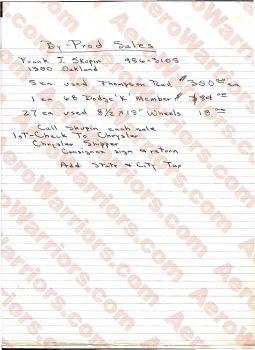 By-Prod Sales
Frank J. Skupin 956-5105
1380 Oakland
5 ea used Thompson Rad $ 200.00 ea
1 ea 68 Dodge 'K' Member $ 84.00
27 ea used 8 1/2 x 15" Wheels 15.00
Call Skupin cash sale
1st-Check To Chrysler
Chrysler Shipper
Consignee sign & return
Add State & City Tax
AeroWarriors.com